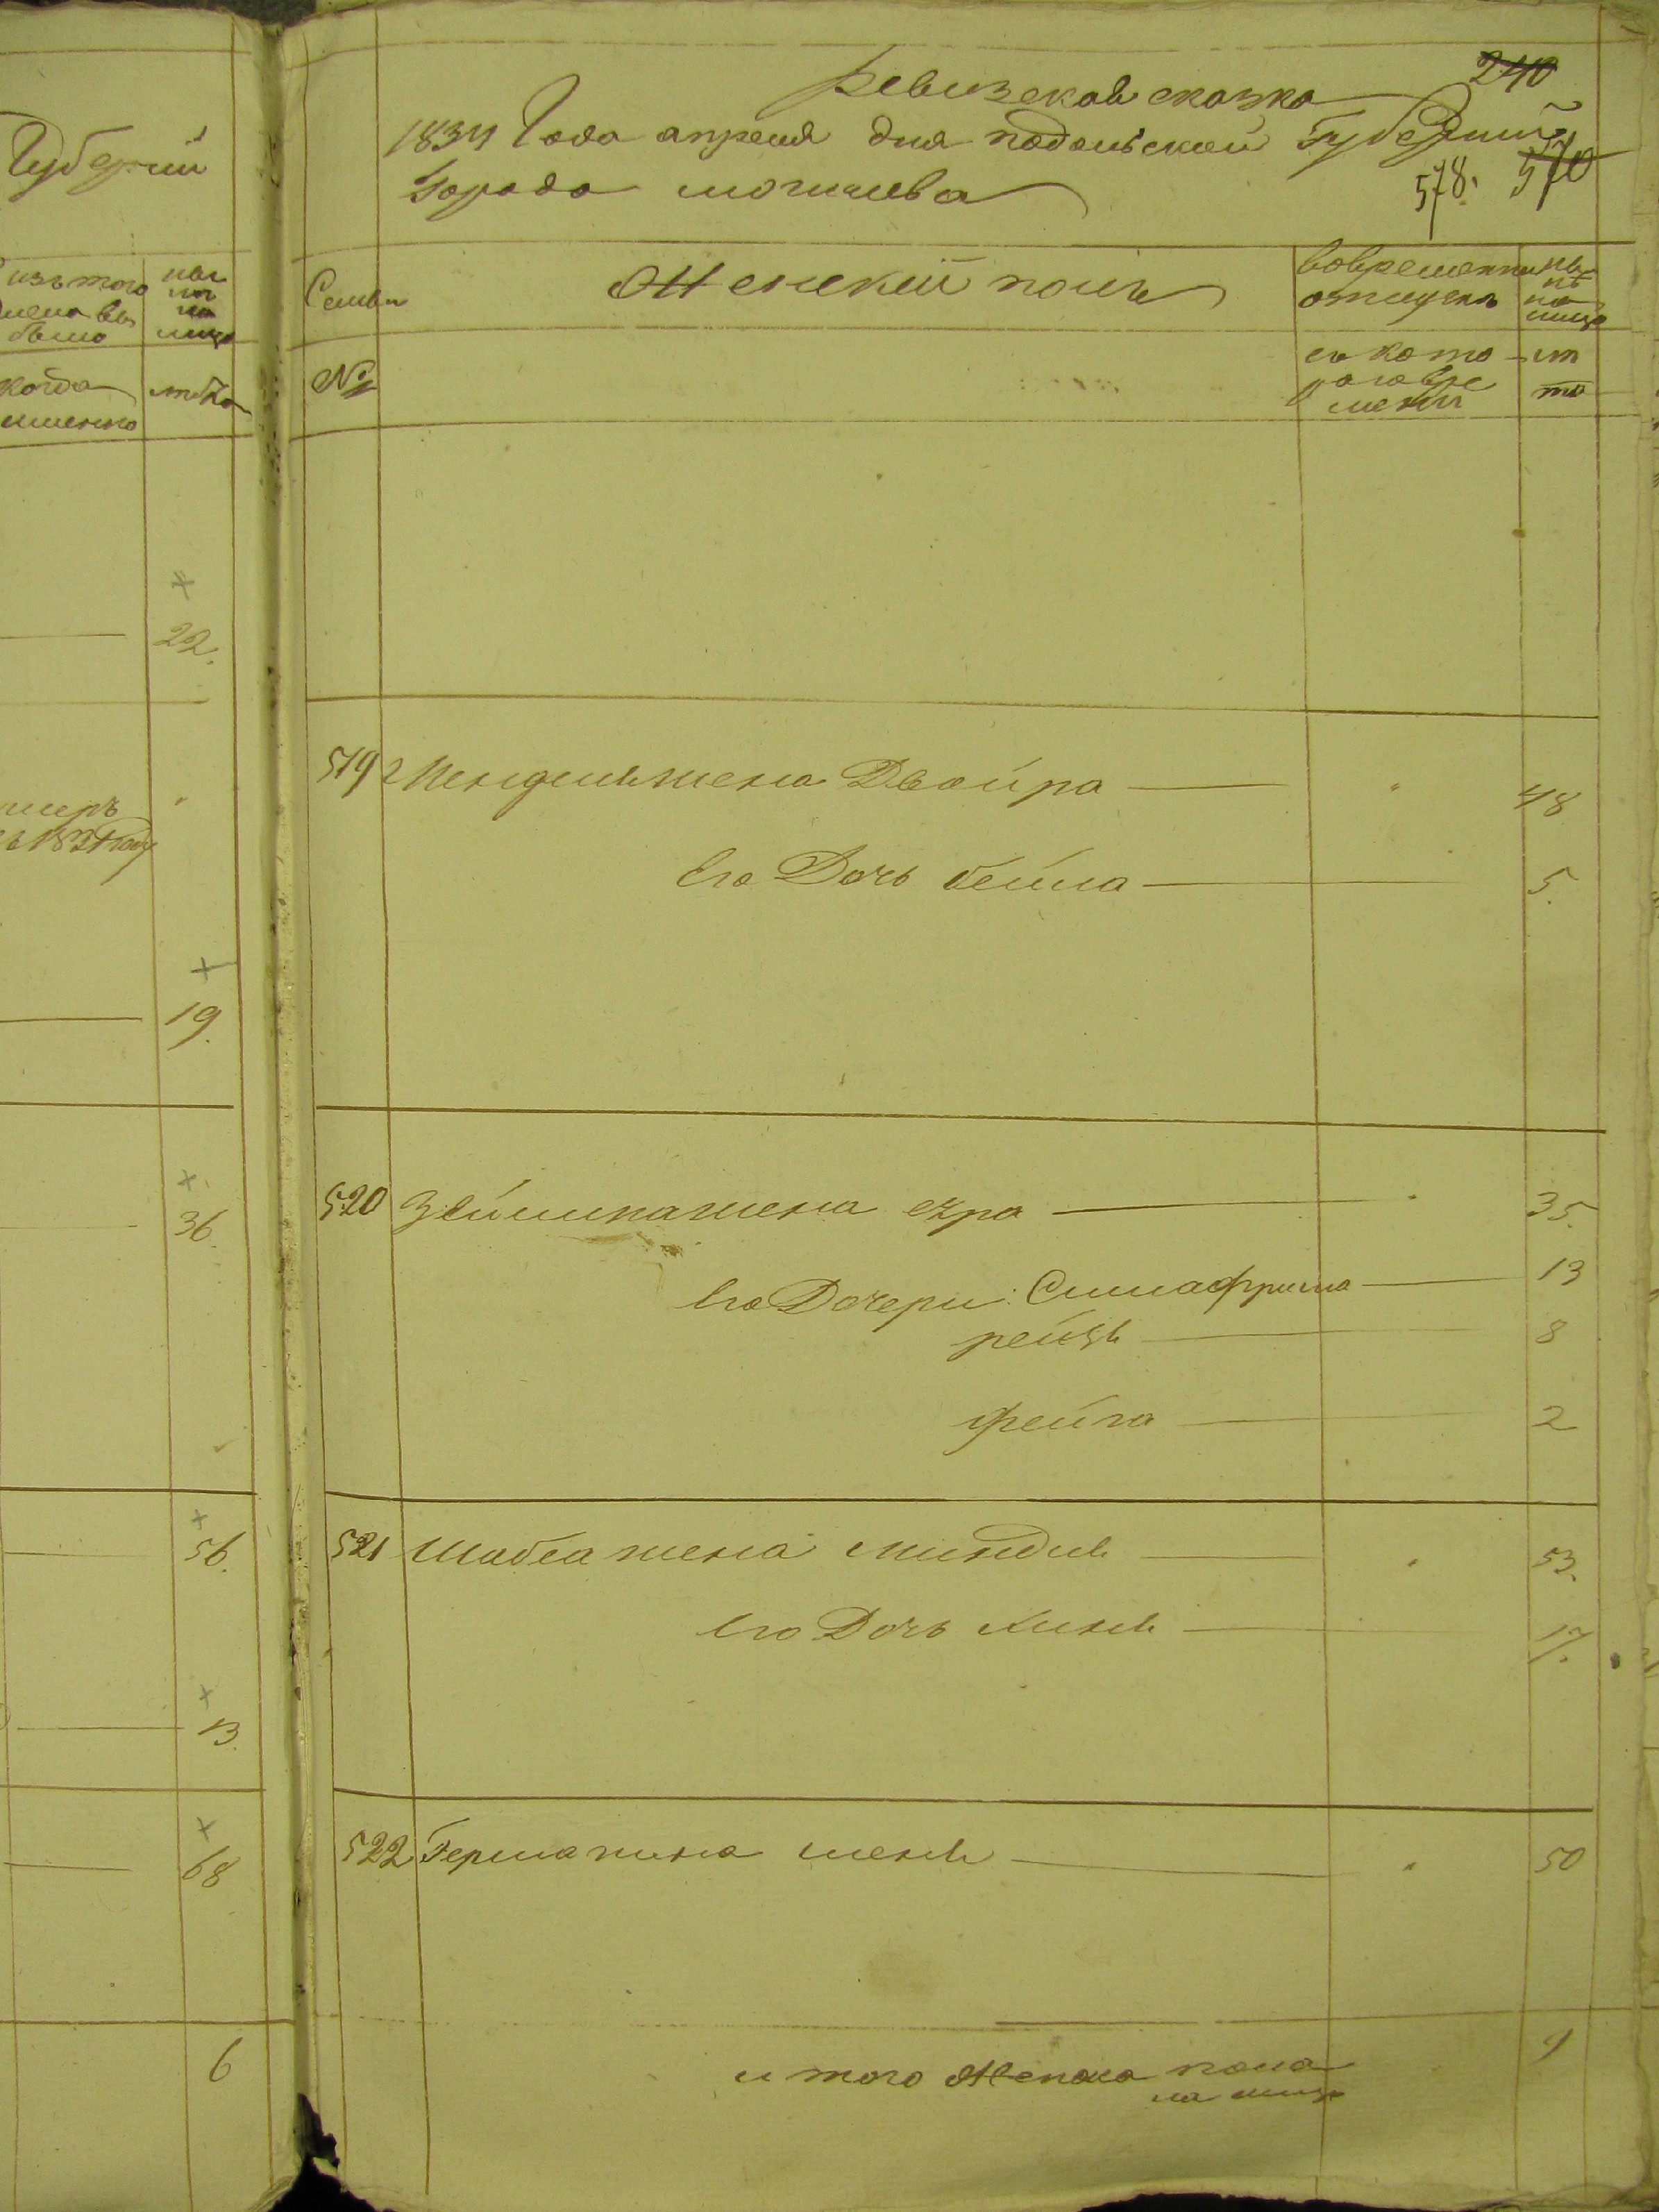 Губернии
изъ того
были
когда
именно
лѣта
22.
умеръ
19.
36.
56.
13.
68
6
240
Ревизская сказка
1834 Года апреля дня подольской Губернии
570
578.
Города могилева
Семьи
Женский полъ
вовременной
отлучке
на
лицо
№
съ кото
раго вре
мени
лѣ
та
519 Мендельжена Двойра 48
Его Дочь бейла 5.
520 Зейлика жена сура 35.
Его Дочери: Симафрима 13
рейзь 8
фейга 2
521 Шабса жена миндль 53.
Его Дочь хинь 17.
522 Гершка жена шень 50
и того Женска пола 9
на лицо